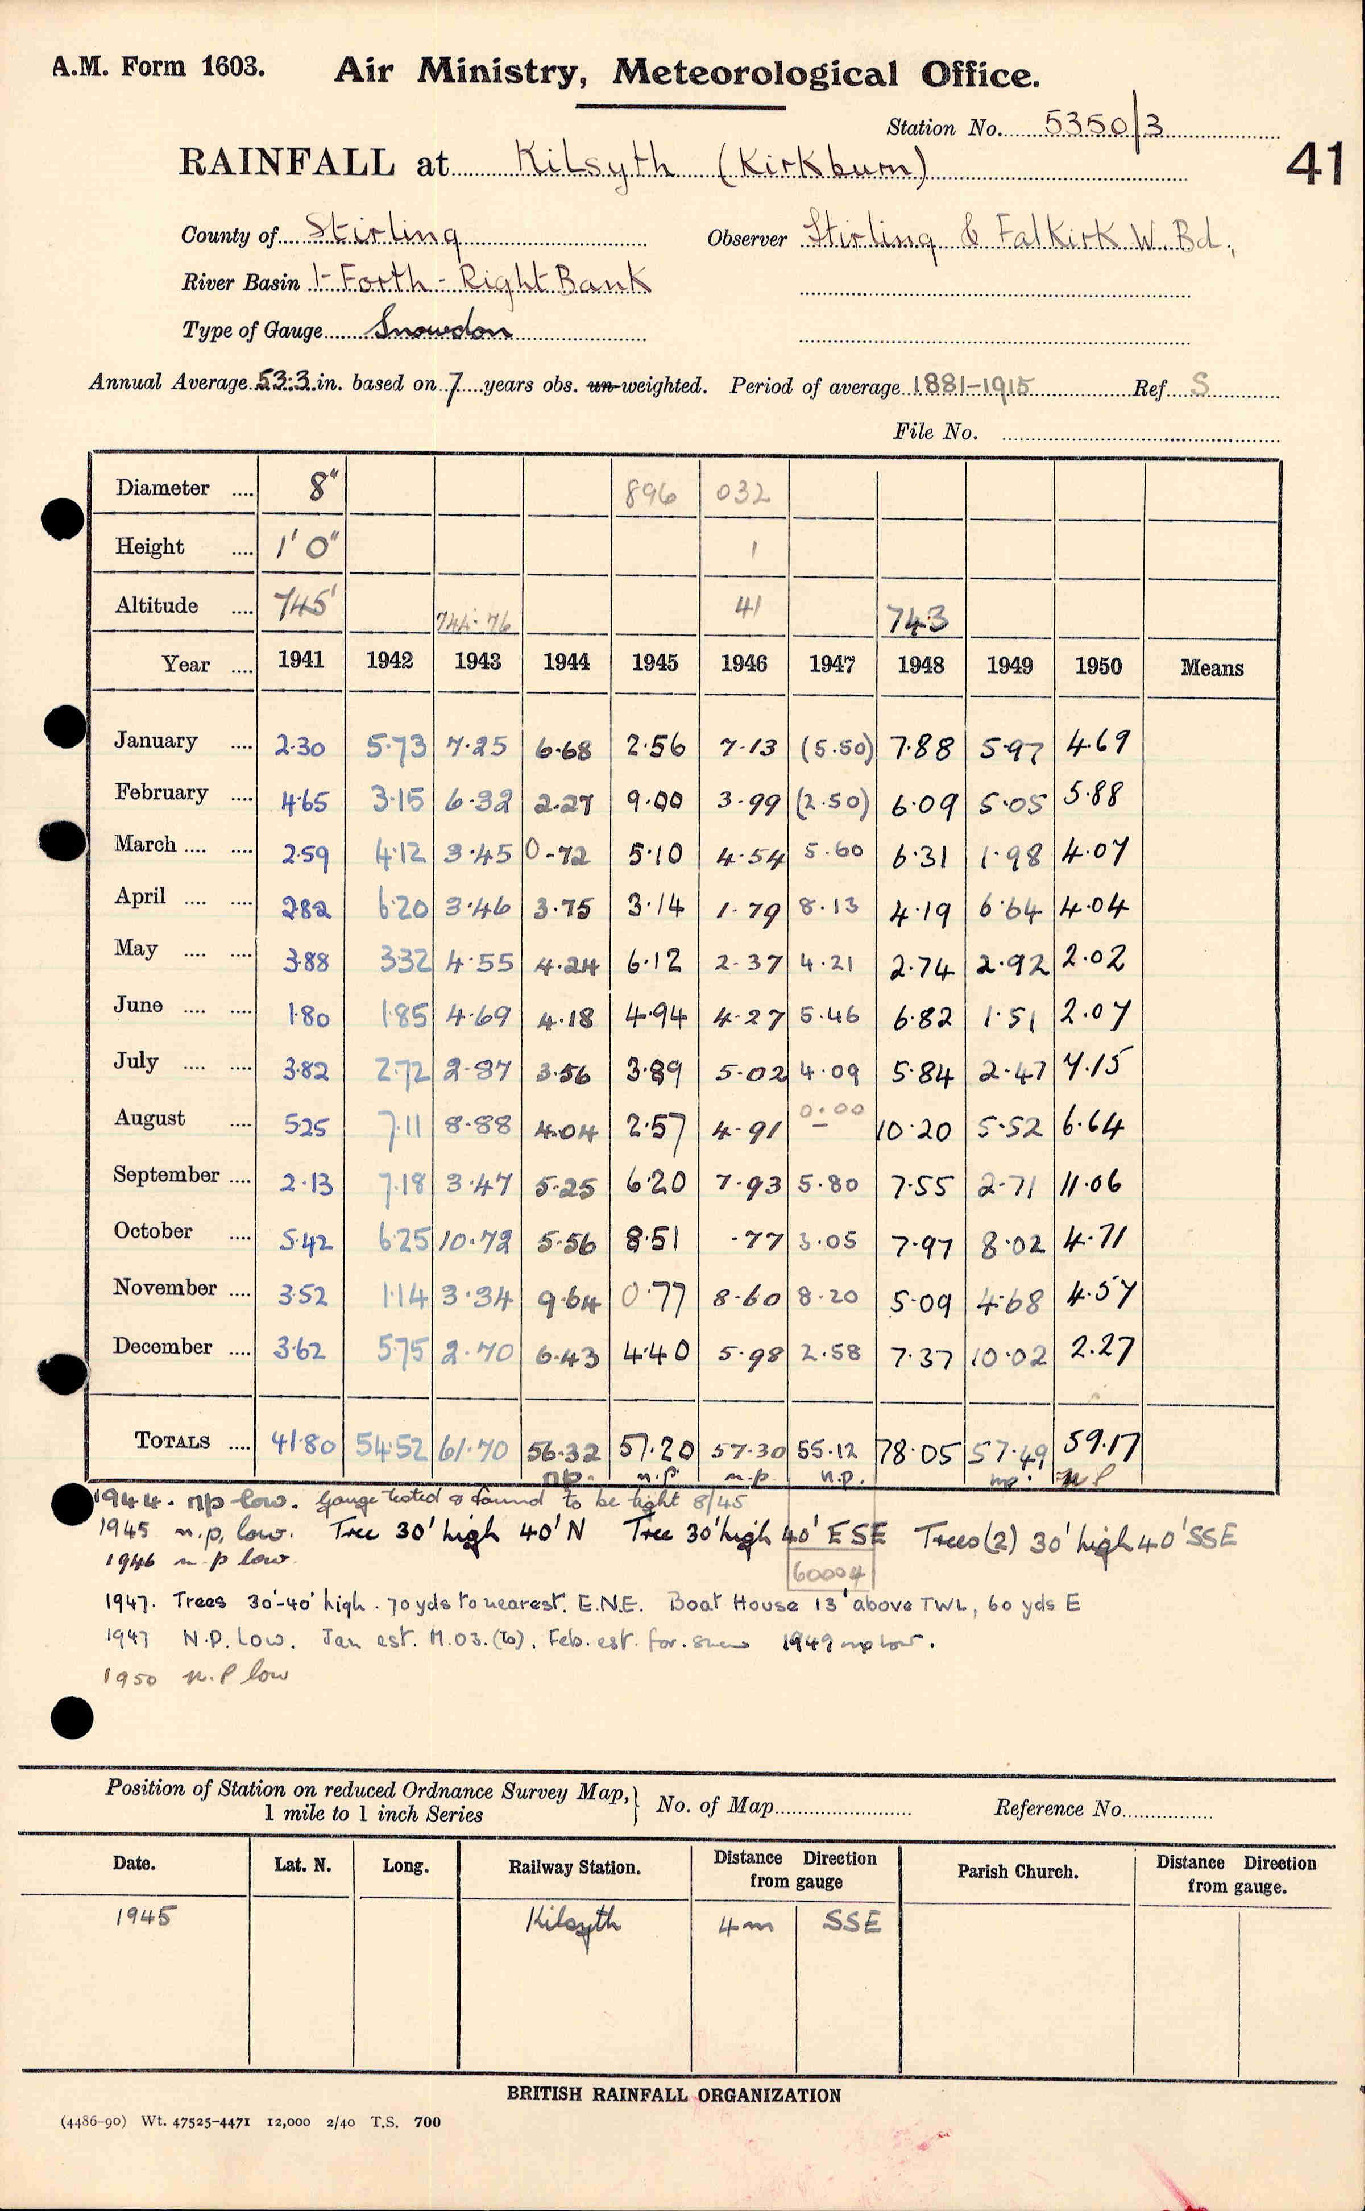 A.M. Form 1603. Air Ministry, Meteorological Office.
Station No. 5350/3
RAINFALL at Kilsyth (Kirkburn) 41
County of Stirling Observer Stirling & Falkirk W. Bd.,
River Basin 1-Forth-Right Bank
Type of Gauge Snowdon
Annual Average 53.3 in. based on 7 years obs. un-weighted. Period of average 1881-1915 Ref. S
File No.
Diameter .... 8" 896 032
Height .... 1' 0" 1
Altitude .... 745' 744.76 41 743
Year .... 1941 1942 1943 1944 1945 1946 1947 1948 1949 1950 Means
January .... 2.30 5.73 7.25 6.68 2.56 7.13 (5.50) 7.88 5.97 4.69
February .... 4.65 3.15 6.32 2.27 9.00 3.99 (2.50) 6.09 5.05 5.88
March .... .... 2.59 4.12 3.45 0.72 5.10 4.54 5.60 6.31 1.98 4.07
April .... .... 2.82 6.20 3.46 3.75 3.14 1.79 8.13 4.19 6.64 4.04
May .... .... 3.88 3.32 4.55 4.24 6.12 2.37 4.21 2.74 2.92 2.02
June .... .... 1.80 1.85 4.69 4.18 4.94 4.27 5.46 6.82 1.51 2.07
July .... .... 3.82 2.72 2.87 3.56 3.89 5.02 4.09 5.84 2.47 7.15
August .... 5.25 7.11 8.88 4.04 2.57 4.91 0.00 – 10.20 5.52 6.64
September .... 2.13 7.18 3.47 5.25 6.20 7.93 5.80 7.55 2.71 11.06
October .... 5.42 6.25 10.72 5.56 8.51 .77 3.05 7.97 8.02 4.71
November .... 3.52 1.14 3.34 9.64 0.77 8.60 8.20 5.09 4.68 4.57
December .... 3.62 5.75 2.70 6.43 4.40 5.98 2.58 7.37 10.02 2.27
TOTALS .... 41.80 54.52 61.70 56.32 57.20 57.30 55.12 78.05 57.49 59.17
n.p. n.p. n.p. n.p. n.p. n.P
1944. n.p low. Gauge tested & found to be tight 8/45
1945 n.p. low. Tree 30' high 40' N Tree 30' high 40' ESE Trees (2) 30' high 40' SSE
1946 n.p low.
60004
1947. Trees 30'-40' high. 70 yds to nearest. E.N.E. Boat House 13' above TWL, 60 yds E
1947 N.P. Low. Jan est. M.03. (To). Feb. est. for. snow 1949 np low.
1950 n.P low
Position of Station on reduced Ordnance Survey Map,
1 mile to 1 inch Series } No. of Map Reference No.
Date. Lat. N. Long. Railway Station. Distance Direction from gauge Parish Church. Distance Direction from gauge.
1945 Kilsyth 4m SSE
BRITISH RAINFALL ORGANIZATION
(4486-90) Wt. 47525-4471 12,000 2/40 T.S. 700